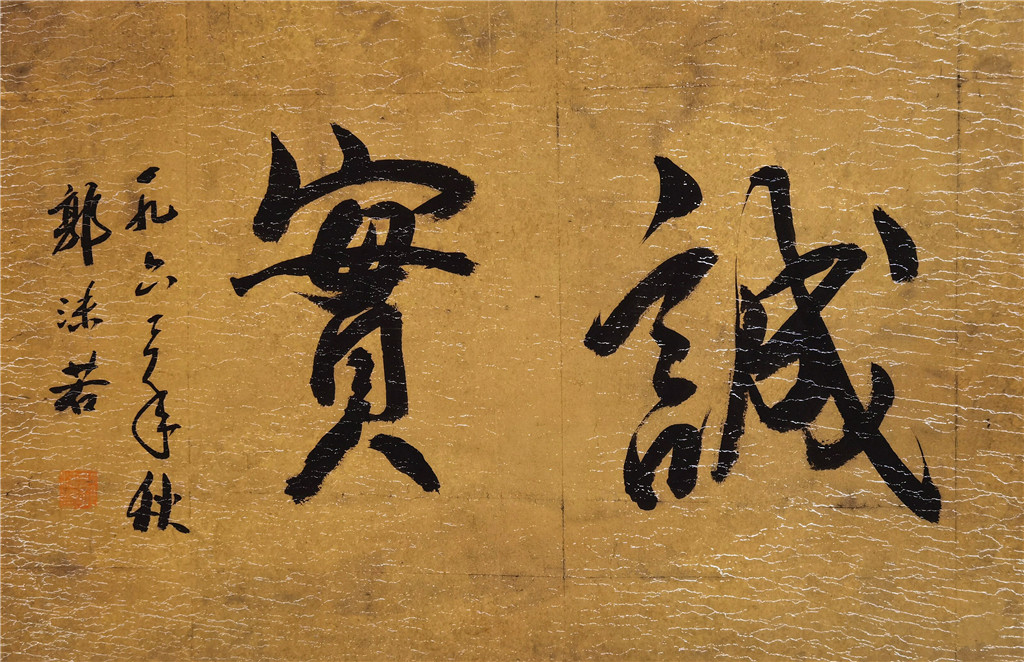 誠實
一九六三年秋
郭沫若